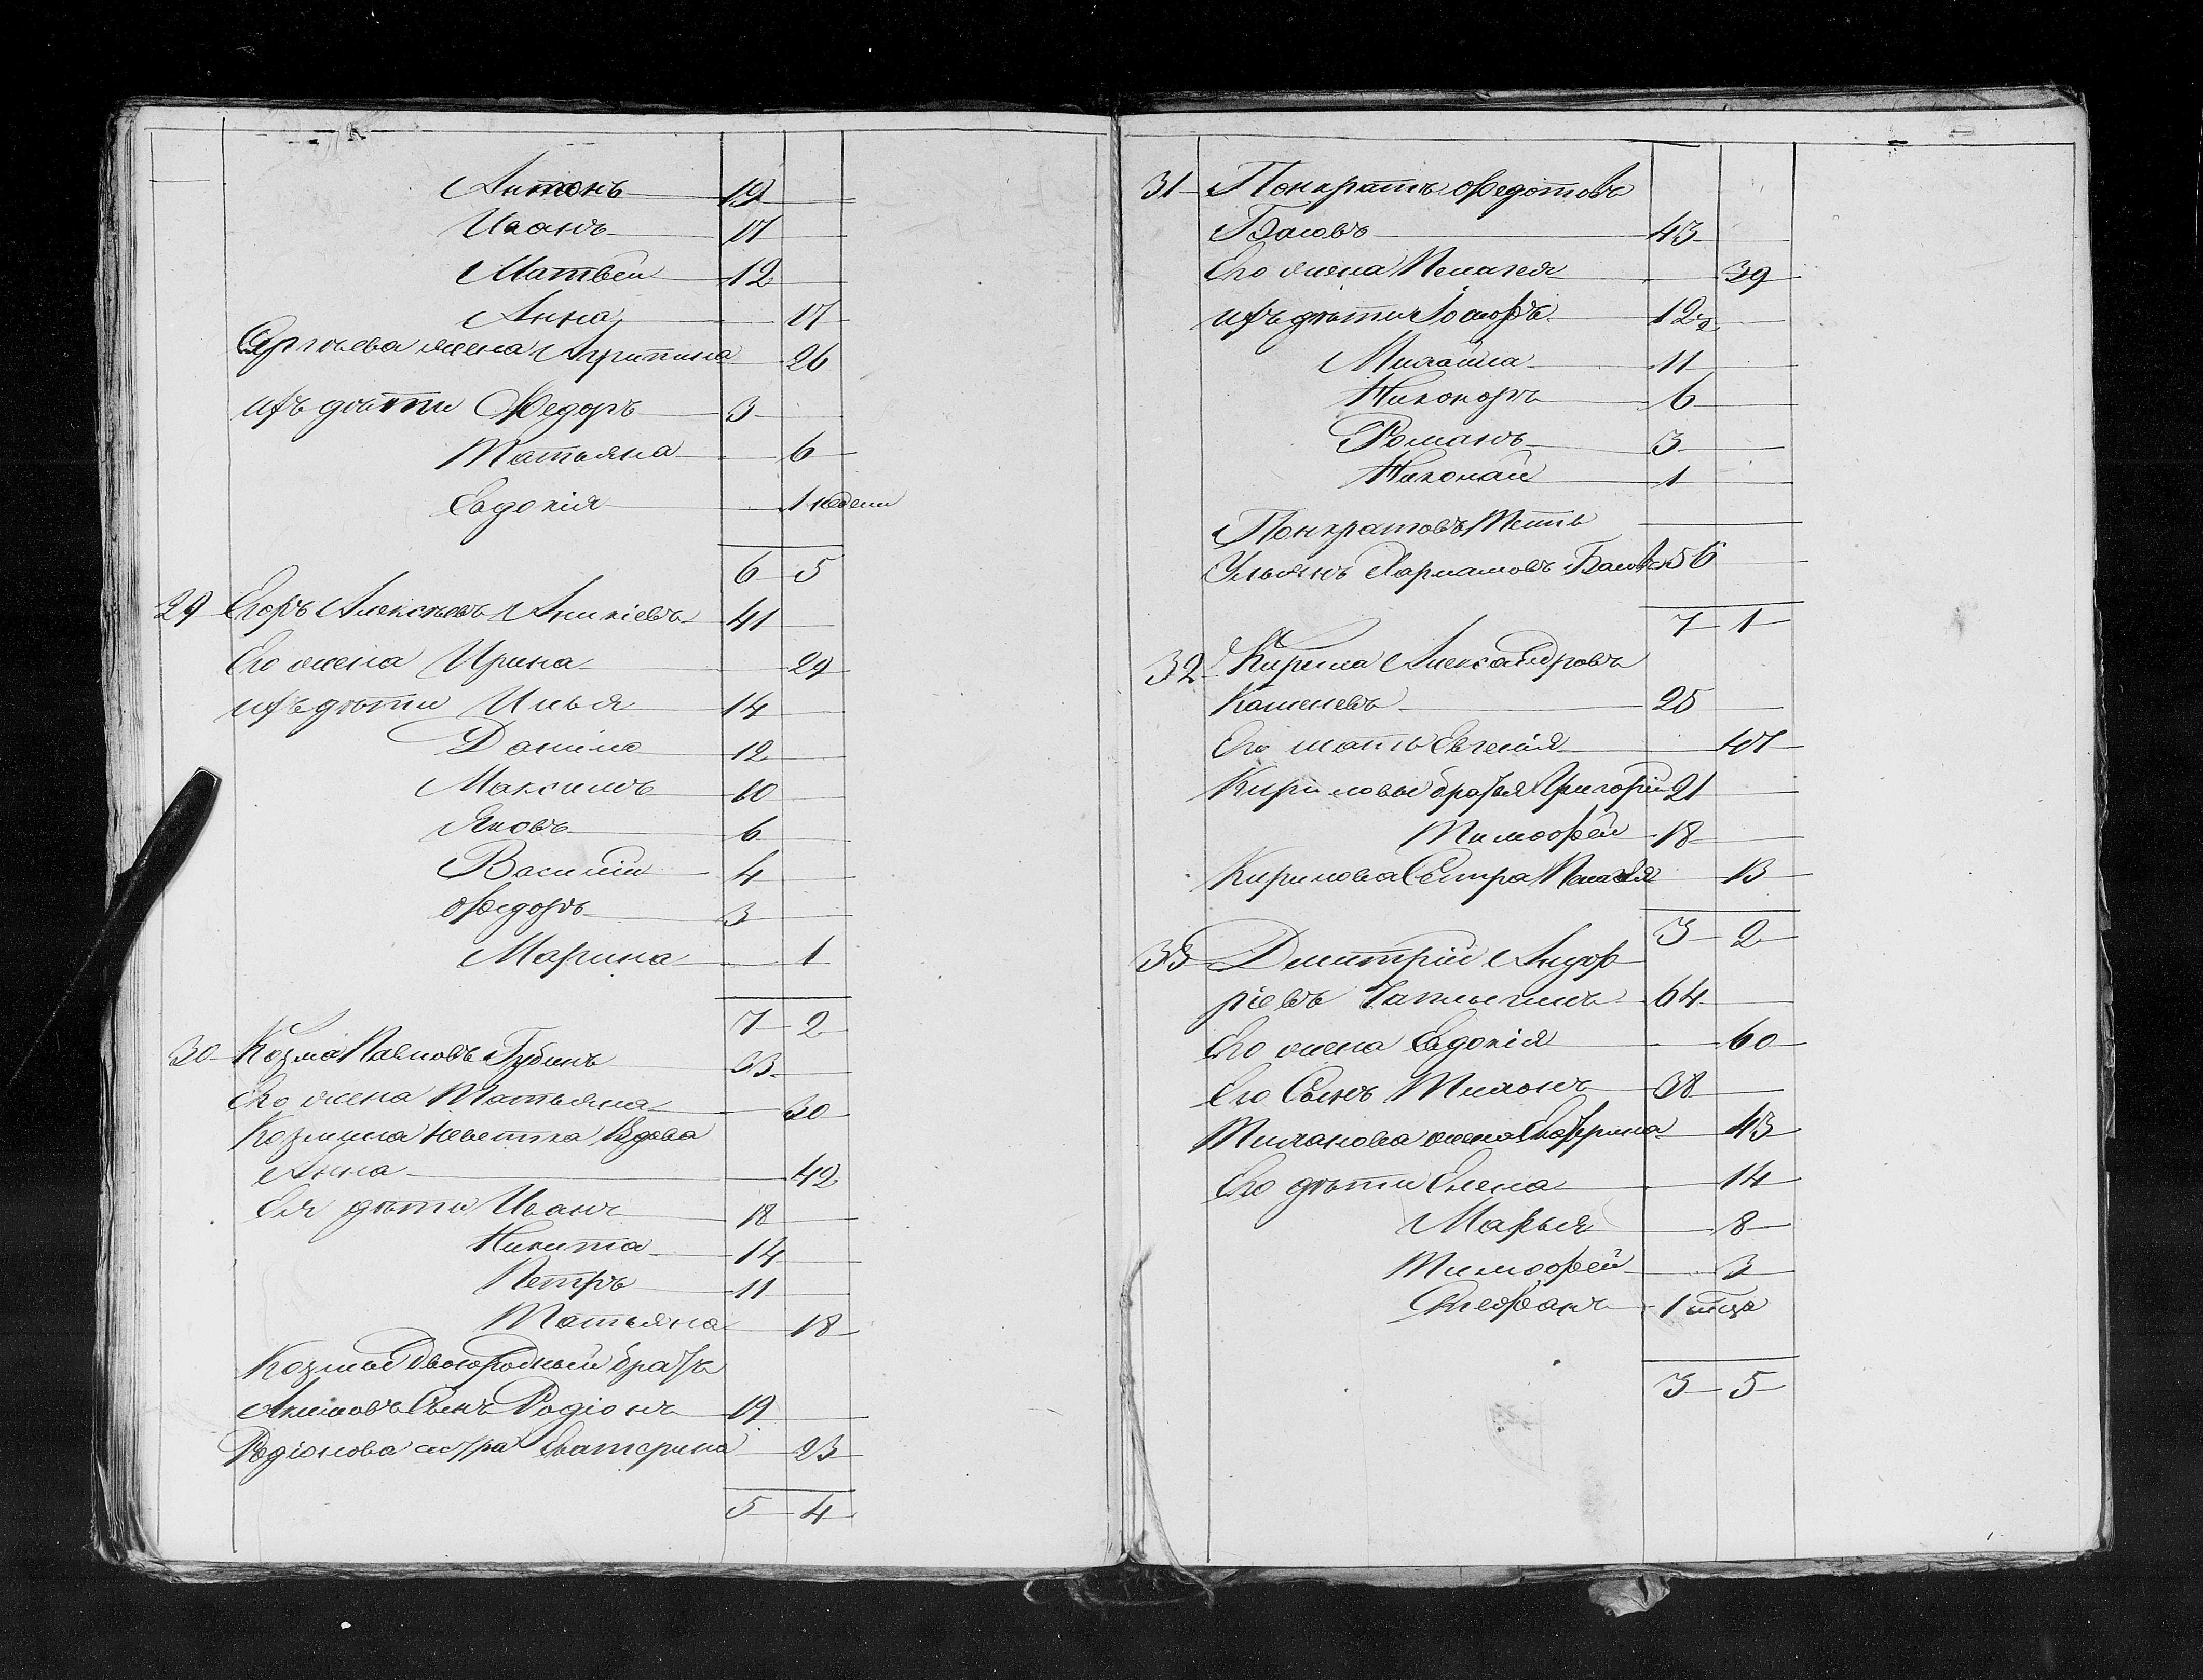 Антонъ 19
Иванъ 17
Матвей 12
Анна 17
Сергѣева жена Агрипина 26
ихъ дѣти Федоръ 3
Татьяна 6
Евдокія 1 недели
6 5
29 Егоръ Алексѣевъ Аникіевъ 41
Его жена Ирина 29
ихъ дѣти Илья 14
Данило 12
Максимъ 10
Яковъ 6
Василій 4
Федоръ 3
Марина 1
7 2
30 Козма Павловъ Губинъ 33
Его жена Татьяна 30
Козмина невестка Вдова
Анна 42
Ея дѣти Иванъ 18
Никита 14
Петръ 11
Татьяна 18
Козмы Двоюродный братъ
Акимовъ Сынъ Родіонъ 19
Родіонова сестра Екатерина 23
5 4
31 Понкратъ Федотовъ
Басовъ 43
Его жена Пелагея 39
ихъ дѣти Іосифъ 12
Михайла 11
Никоноръ 6
Романъ 3
Николай 1
Понкратовъ Тесть
Ульянъ Харламовъ Басовъ 56
7 1
32 Кирила Александровъ
Кошелевъ 25
Его мать Евгенія 47
Кириловы братья Григорій 21
Тимофей 18
Кирилова Сестра Пелагея 13
3 2
33 Дмитрій Андр
ріевъ Чаплыгинъ 64
Его жена Евдокія 60
Его Сынъ Тихонъ 38
Тиханова жена Екатерина 43
Его дѣти Елена 14
Марья 8
Тимофей 3
Стефанъ 1 мѣца
3 5